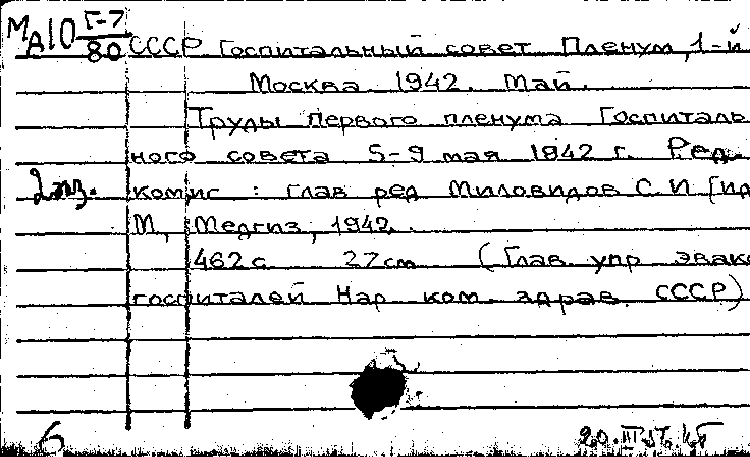 МА10 Г-7/80
СССР Госпитальный совет Пленум, 1-й
Москва 1942. Май.
Труды первого пленума Госпиталь
ного совета 5-9 мая 1942 г. Ред.
2 экз. комис : глав ред Миловидов С.И [и др
М, Медгиз, 1942.
462 с 27 см (Глав упр эвако
госпиталей Нар ком. здрав. СССР)
6